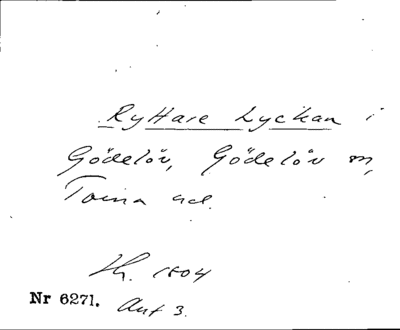 Ryttare Lyckan i
Gödelöv, Gödelöv sn,
Torna hd.
Lh. 1804
Nr 6271. Ant 3.